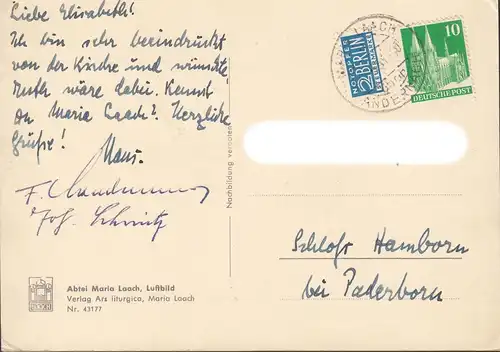 Liebe Elisabeth!
Ich bin sehr beeindruckt
von der Kirche und wünschte
Ruth wäre dabei. Kennst
du Maria Laach? Herzliche
Grüße!
Hans.
Joh. Schmitz
Nachbildung verboten
Abtei Maria Laach, Luftbild
Verlag Ars liturgica, Maria Laach
Nr. 43177
NOTOPFER
2 BERLIN
STEUERMARKE
10
DEUTSCHE POST
MARIA LAACH
ANDERNACH
Schloß Hamborn
bei Paderborn